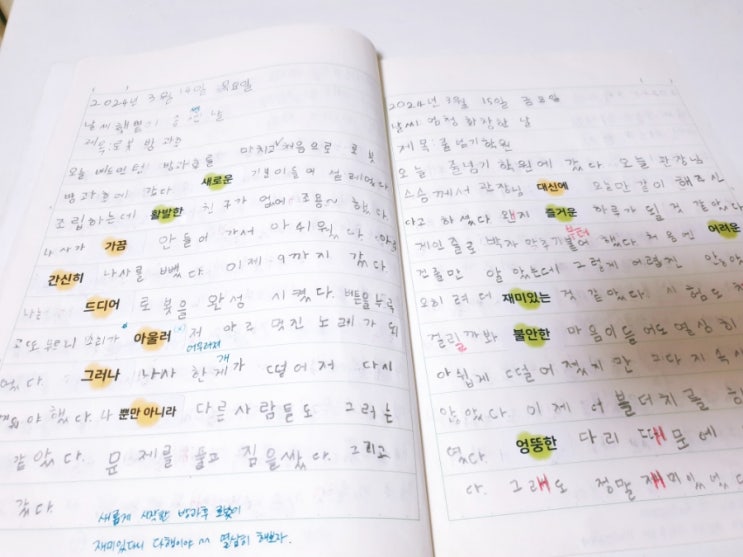 2024년 3월 14일 목요일
날씨 햇볕이 쨍 쨘 날
제목: 로봇 방과후
오늘 방과후를 마치고 처음으로 로봇
방과후에 갔다 새로운 기분이 들어 설레였다
조립하는데 활발한 친구가 없어 조용~ 했다.
나사가 가끔 안들어 가서 아쉬웠다.
간신히 나사를 뺐다. 이제 가지 갔다.
나는 드디어 로봇을 완성 시켰다. 버튼을 누르
고 또 누르니 소리가 아울러 저 아름 멋진 노래가 되
어우러져
었다. 그러나 나사 한개가 떨어저 다시
야 했다. 나 뿐만 아니라 다른 사람들도 그러는
같았다. 문제를 풀고 짐을 쌌다. 그리고
갔다
새롭게 시작한 방과후 로봇이
재미있다니 다행이야 ^^ 열심히 해보자.
2024년 3월 15일 금요일
날씨 엄청 화창한 날
제목 줄넘기학원
오늘 줄넘기 학원에 갔다. 오늘 관장님
스승께서 관장님 대신에 오늘만 같이 해주신
다고 하셨다 왠지 즐거운 하루가 될것 같았다
체인줄로 박자 맞추기부터 했다 처음엔 어려운
건줄만 알았는데 그렇게 어렵진 않
오히려 더 재미있는 것 같았다. 시험도 쳐
걸릴까봐 불안한 마음이 들어도 열심히
아쉽게 떨어졌지만 그다지 속
않았다. 이제 더블 던지를
었다. 엉뚱한 다리 때문에
다. 그래도 정말 재미있었다